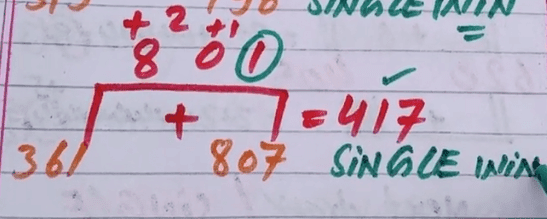 SINGLE ININ
+ 2 +1
8 0 1
+ = 417
361 807 SINGLE ININ